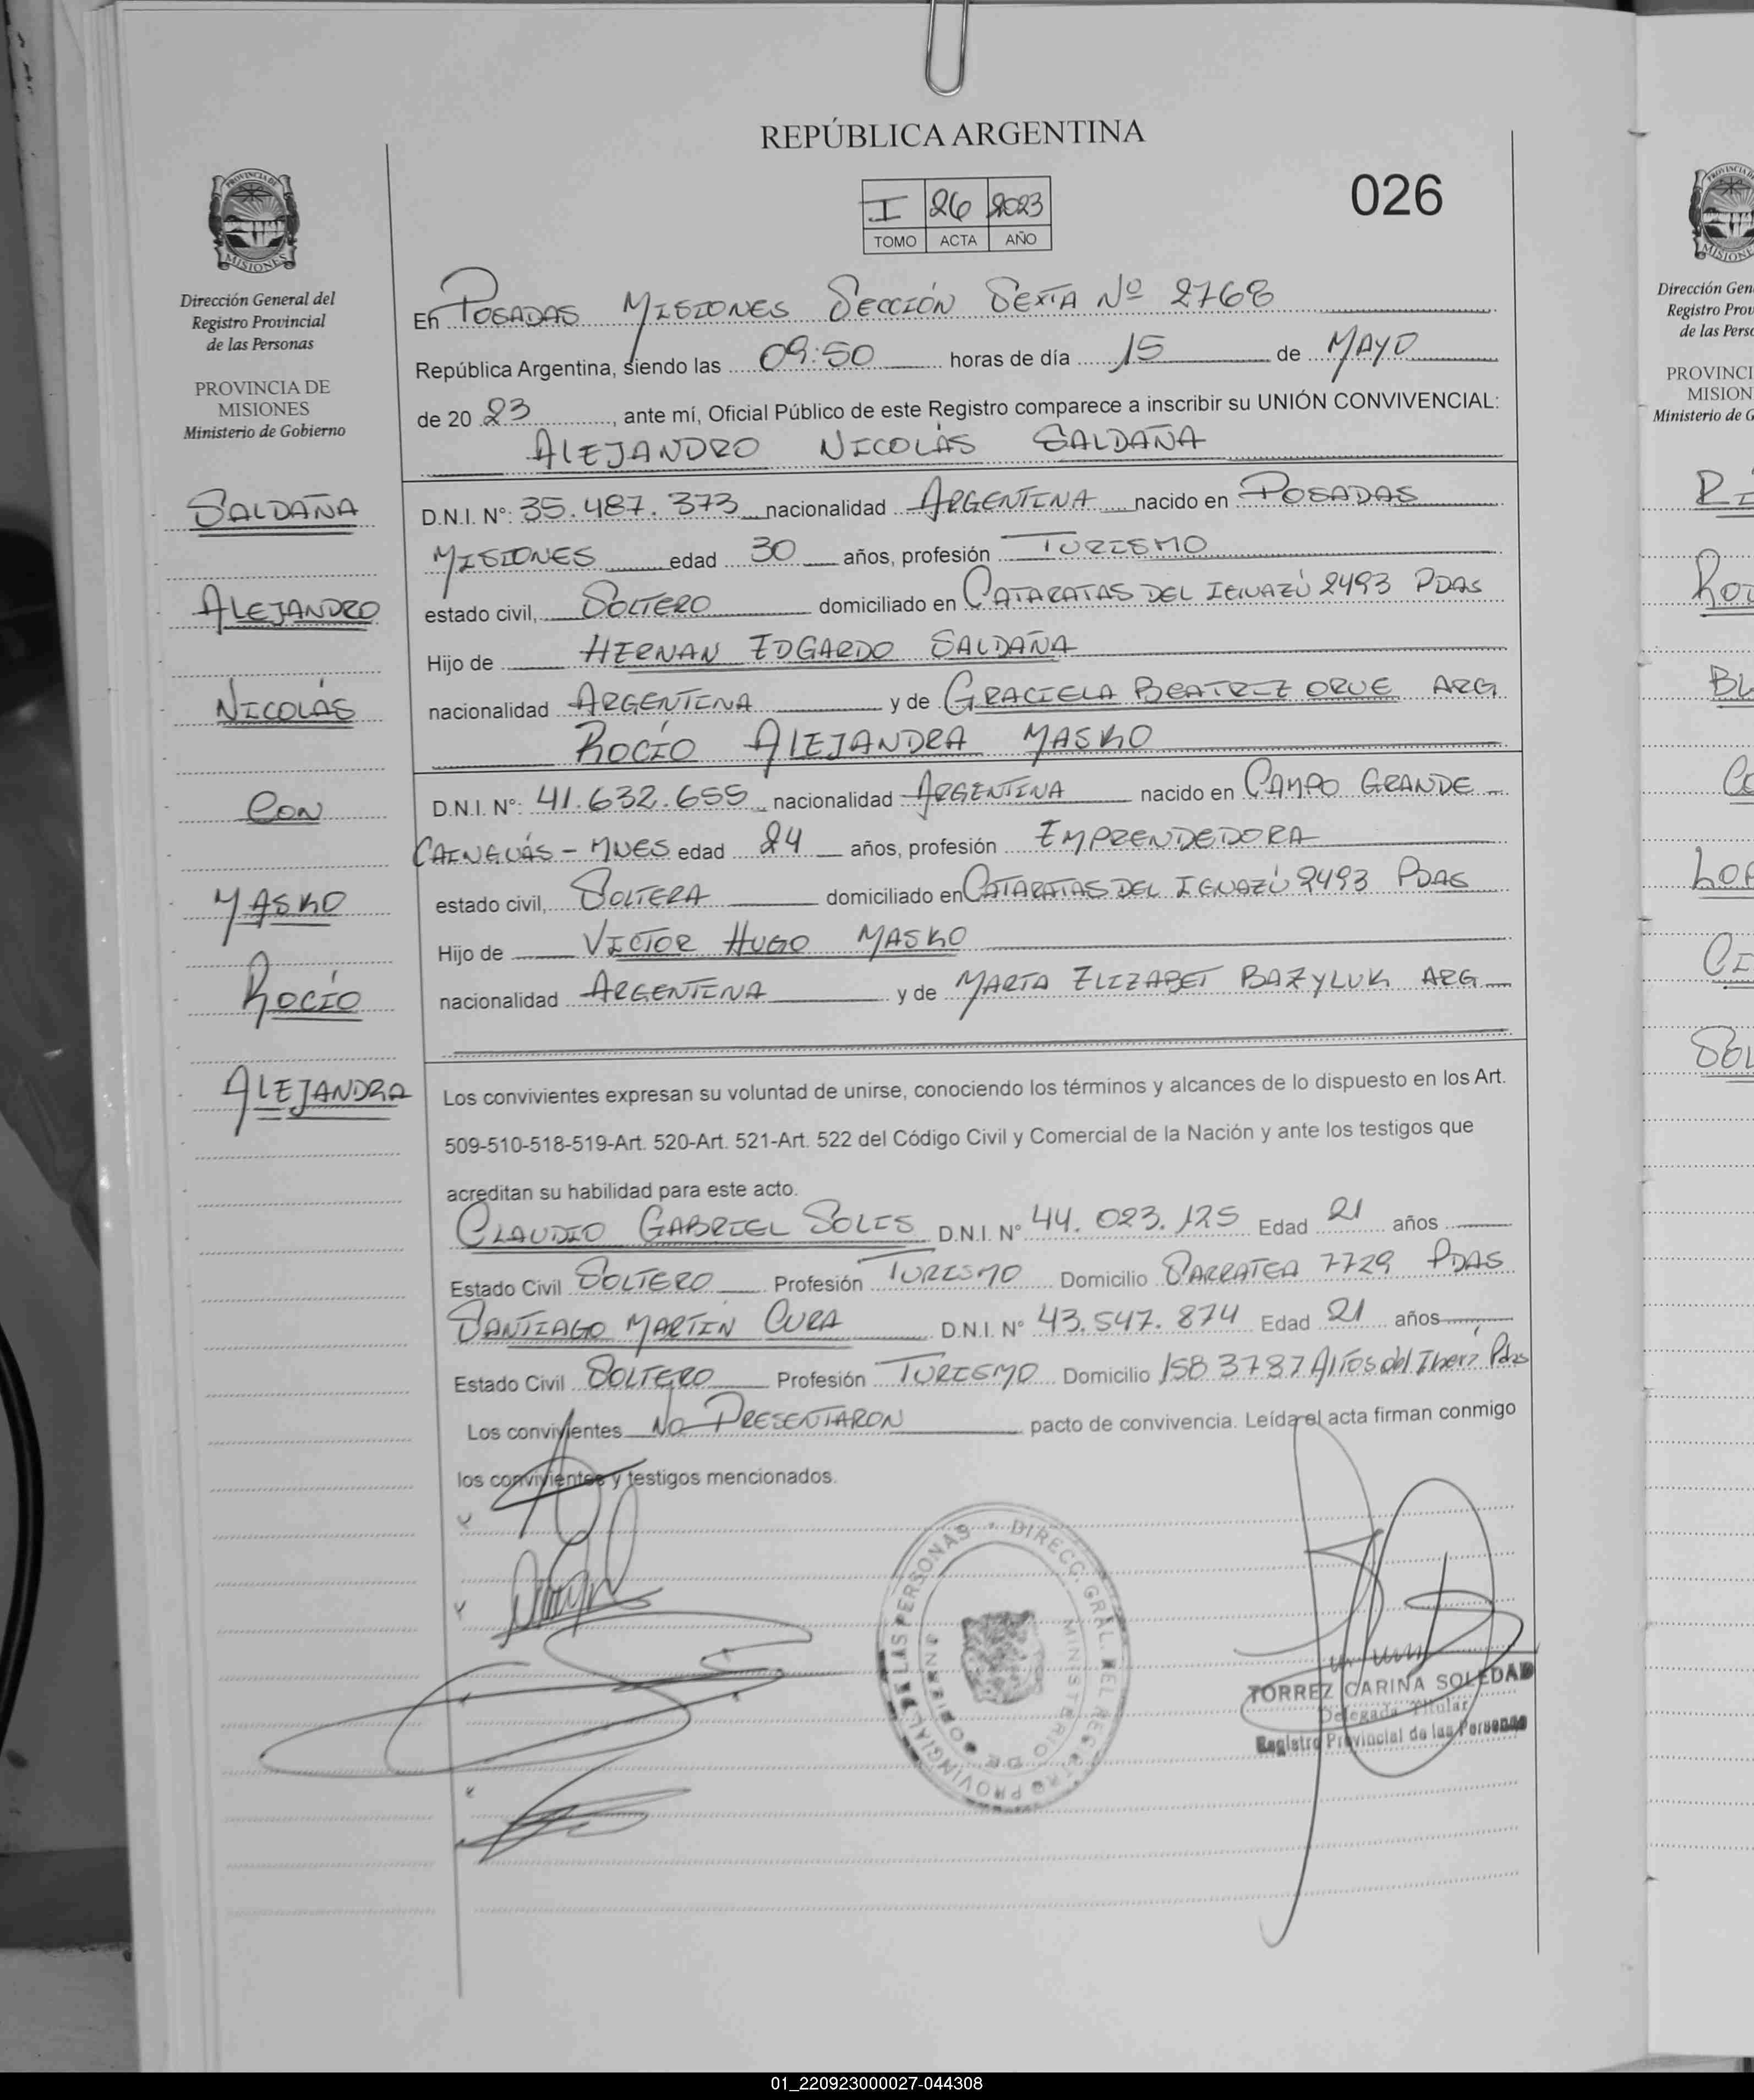 REPÚBLICA ARGENTINA
026
I 26 2023
TOMO ACTA AÑO
PROVINCIA DE
MISIONES
Dirección General del
Registro Provincial
de las Personas
PROVINCIA DE
MISIONES
Ministerio de Gobierno
SALDAÑA
ALEJANDRO
NICOLÁS
CON
MASKO
ROCÍO
ALEJANDRA
En POSADAS MISIONES SECCIÓN SEXTA Nº 2768
República Argentina, siendo las 09:50 horas de día 15 de MAYO
de 20 23, ante mí, Oficial Público de este Registro comparece a inscribir su UNIÓN CONVIVENCIAL:
ALEJANDRO NICOLÁS SALDAÑA
D.N.I. Nº: 35.487.373 nacionalidad ARGENTINA nacido en POSADAS
MISIONES edad 30 años, profesión TURISMO
estado civil, SOLTERO domiciliado en CATARATAS DEL IGUAZÚ 2493 PDAS
Hijo de HERNAN EDGARDO SALDAÑA
nacionalidad ARGENTINA y de GRACIELA BEATRIZ ORUE ARG
ROCÍO ALEJANDRA MASKO
D.N.I. Nº: 41.632.655 nacionalidad ARGENTINA nacido en CAMPO GRANDE
CAINGUÁS - MNES edad 24 años, profesión EMPRENDEDORA
estado civil, SOLTERA domiciliado en CATARATAS DEL IGUAZÚ 2493 PDAS
Hijo de VICTOR HUGO MASKO
nacionalidad ARGENTINA y de MARTA ELIZABET BAZYLUK ARG
Los convivientes expresan su voluntad de unirse, conociendo los términos y alcances de lo dispuesto en los Art.
509-510-518-519-Art. 520-Art. 521-Art. 522 del Código Civil y Comercial de la Nación y ante los testigos que
acreditan su habilidad para este acto.
CLAUDIO GABRIEL SOLIS D.N.I. Nº 44.023.125 Edad 21 años
Estado Civil SOLTERO Profesión TURISMO Domicilio SARRATEA 7729 PDAS
SANTIAGO MARTIN CURA D.N.I. Nº 43.547.874 Edad 21 años
Estado Civil SOLTERO Profesión TURISMO Domicilio 158 3787 Altos del Pdas
Los convivientes No PRESENTARON pacto de convivencia. Leída el acta firman conmigo
los convivientes y testigos mencionados.
DIRECC. GRAL. DEL REGISTRO PROVINCIAL DE LAS PERSONAS
MINISTERIO DE GOBIERNO
TORREZ CARINA SOLEDAD
Delegada Titular
Registro Provincial de las Personas
Dirección Gen
Registro Prov
de las Perso
PROVINCI
MISION
Ministerio de G
01_220923000027-044308